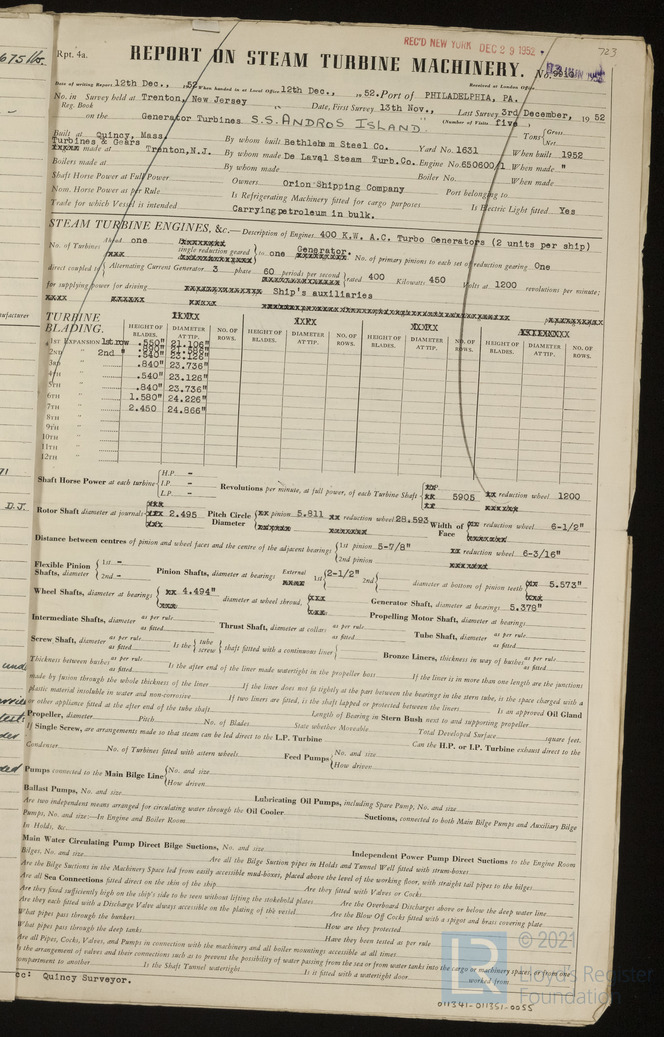 REC'D NEW YORK DEC 29 1952
723
675 lbs.
Rpt. 4a.
REPORT ON STEAM TURBINE MACHINERY.
No.
Date of writing Report 12th Dec., 52 When handed in at Local Office 12th Dec., 52. Port of PHILADELPHIA, PA.
Received at London Office
No. in Survey held at Trenton, New Jersey Date, First Survey 13th Nov., Last Survey 3rd December, 1952
Reg. Book
(Number of Visits five)
on the Generator Turbines S.S. "ANDROS ISLAND" Tons {Gross Net
Built at Quincy, Mass. By whom built Bethlehem Steel Co. Yard No. 1631 When built 1952
Turbines & Gears made at Trenton, N.J. By whom made De Laval Steam Turb. Co. Engine No. 650600/1 When made "
Boilers made at By whom made Boiler No. When made
Shaft Horse Power at Full Power Owners Orion Shipping Company Port belonging to
Nom. Horse Power as per Rule Is Refrigerating Machinery fitted for cargo purposes Is Electric Light fitted Yes
Trade for which Vessel is intended Carrying petroleum in bulk.
STEAM TURBINE ENGINES, &c.—Description of Engines 400 K.W. A.C. Turbo Generators (2 units per ship)
No. of Turbines Ahead one single reduction geared to one Generator. No. of primary pinions to each set of reduction gearing One
direct coupled to { Alternating Current Generator 3 phase 60 periods per second } rated 400 Kilowatts 450 Volts at 1200 revolutions per minute;
for supplying power for driving Ship's auxiliaries
TURBINE BLADING.
HEIGHT OF BLADES. DIAMETER AT TIP. NO. OF ROWS. HEIGHT OF BLADES. DIAMETER AT TIP. NO. OF ROWS. HEIGHT OF BLADES. DIAMETER AT TIP. NO. OF ROWS. HEIGHT OF BLADES. DIAMETER AT TIP. NO. OF ROWS.
1ST EXPANSION 1st row .550" 21.106"
2ND " 2nd "
.540" 23.126"
.840" 23.736"
.540" 23.126"
5TH " .840" 23.736"
6TH " 1.580" 24.226"
7TH " 2.450 24.866"
8TH "
9TH "
10TH "
11TH "
12TH "
Shaft Horse Power at each turbine { H.P. - I.P. - L.P. -
Revolutions per minute, at full power, of each Turbine Shaft 5905 reduction wheel 1200
Rotor Shaft diameter at journals 2.495 Pitch Circle Diameter pinion 5.811 reduction wheel 28.593 Width of Face reduction wheel 6-1/2"
Distance between centres of pinion and wheel faces and the centre of the adjacent bearings { 1st pinion 5-7/8" 2nd pinion reduction wheel 6-3/16"
Flexible Pinion Shafts, diameter { 1st - 2nd - Pinion Shafts, diameter at bearings External 1st 2-1/2" 2nd diameter at bottom of pinion teeth 5.573"
Wheel Shafts, diameter at bearings 4.494" diameter at wheel shroud, Generator Shaft, diameter at bearings 5.378"
Propelling Motor Shaft, diameter at bearings
Intermediate Shafts, diameter as per rule as fitted Thrust Shaft, diameter at collars as per rule as fitted Tube Shaft, diameter as per rule as fitted
Screw Shaft, diameter as per rule as fitted Is the { tube screw } shaft fitted with a continuous liner Bronze Liners, thickness in way of bushes as per rule as fitted
Thickness between bushes as per rule as fitted Is the after end of the liner made watertight in the propeller boss If the liner is in more than one length are the junctions
made by fusion through the whole thickness of the liner If the liner does not fit tightly at the part between the bearings in the stern tube, is the space charged with a
plastic material insoluble in water and non-corrosive If two liners are fitted, is the shaft lapped or protected between the liners Is an approved Oil Gland
or other appliance fitted at the after end of the tube shaft Length of Bearing in Stern Bush next to and supporting propeller
Propeller, diameter Pitch No. of Blades State whether Moveable Total Developed Surface square feet.
If Single Screw, are arrangements made so that steam can be led direct to the L.P. Turbine Can the H.P. or I.P. Turbine exhaust direct to the
Condenser No. of Turbines fitted with astern wheels Feed Pumps { No. and size How driven
Pumps connected to the Main Bilge Line { No. and size How driven
Ballast Pumps, No. and size Lubricating Oil Pumps, including Spare Pump, No. and size
Are two independent means arranged for circulating water through the Oil Cooler Suctions, connected to both Main Bilge Pumps and Auxiliary Bilge
Pumps, No. and size:—In Engine and Boiler Room
In Holds, &c.
Main Water Circulating Pump Direct Bilge Suctions, No. and size Independent Power Pump Direct Suctions to the Engine Room
Bilges, No. and size Are all the Bilge Suction pipes in Holds and Tunnel Well fitted with strum-boxes
Are the Bilge Suctions in the Machinery Space led from easily accessible mud-boxes, placed above the level of the working floor, with straight tail pipes to the bilges
Are all Sea Connections fitted direct on the skin of the ship Are they fitted with Valves or Cocks
Are they fixed sufficiently high on the ship's side to be seen without lifting the stokehold plates Are the Overboard Discharges above or below the deep water line
Are they each fitted with a Discharge Valve always accessible on the plating of the vessel Are the Blow Off Cocks fitted with a spigot and brass covering plate
What pipes pass through the bunkers How are they protected
What pipes pass through the deep tanks Have they been tested as per rule
Are all Pipes, Cocks, Valves, and Pumps in connection with the machinery and all boiler mountings accessible at all times
Is the arrangement of valves and their connections such as to prevent the possibility of water passing from the sea or from water tanks into the cargo or machinery spaces, or from one
compartment to another Is the Shaft Tunnel watertight Is it fitted with a watertight door worked from
cc: Quincy Surveyor.
© 2021
LR
Lloyd's Register
Foundation
011341-011351-0055